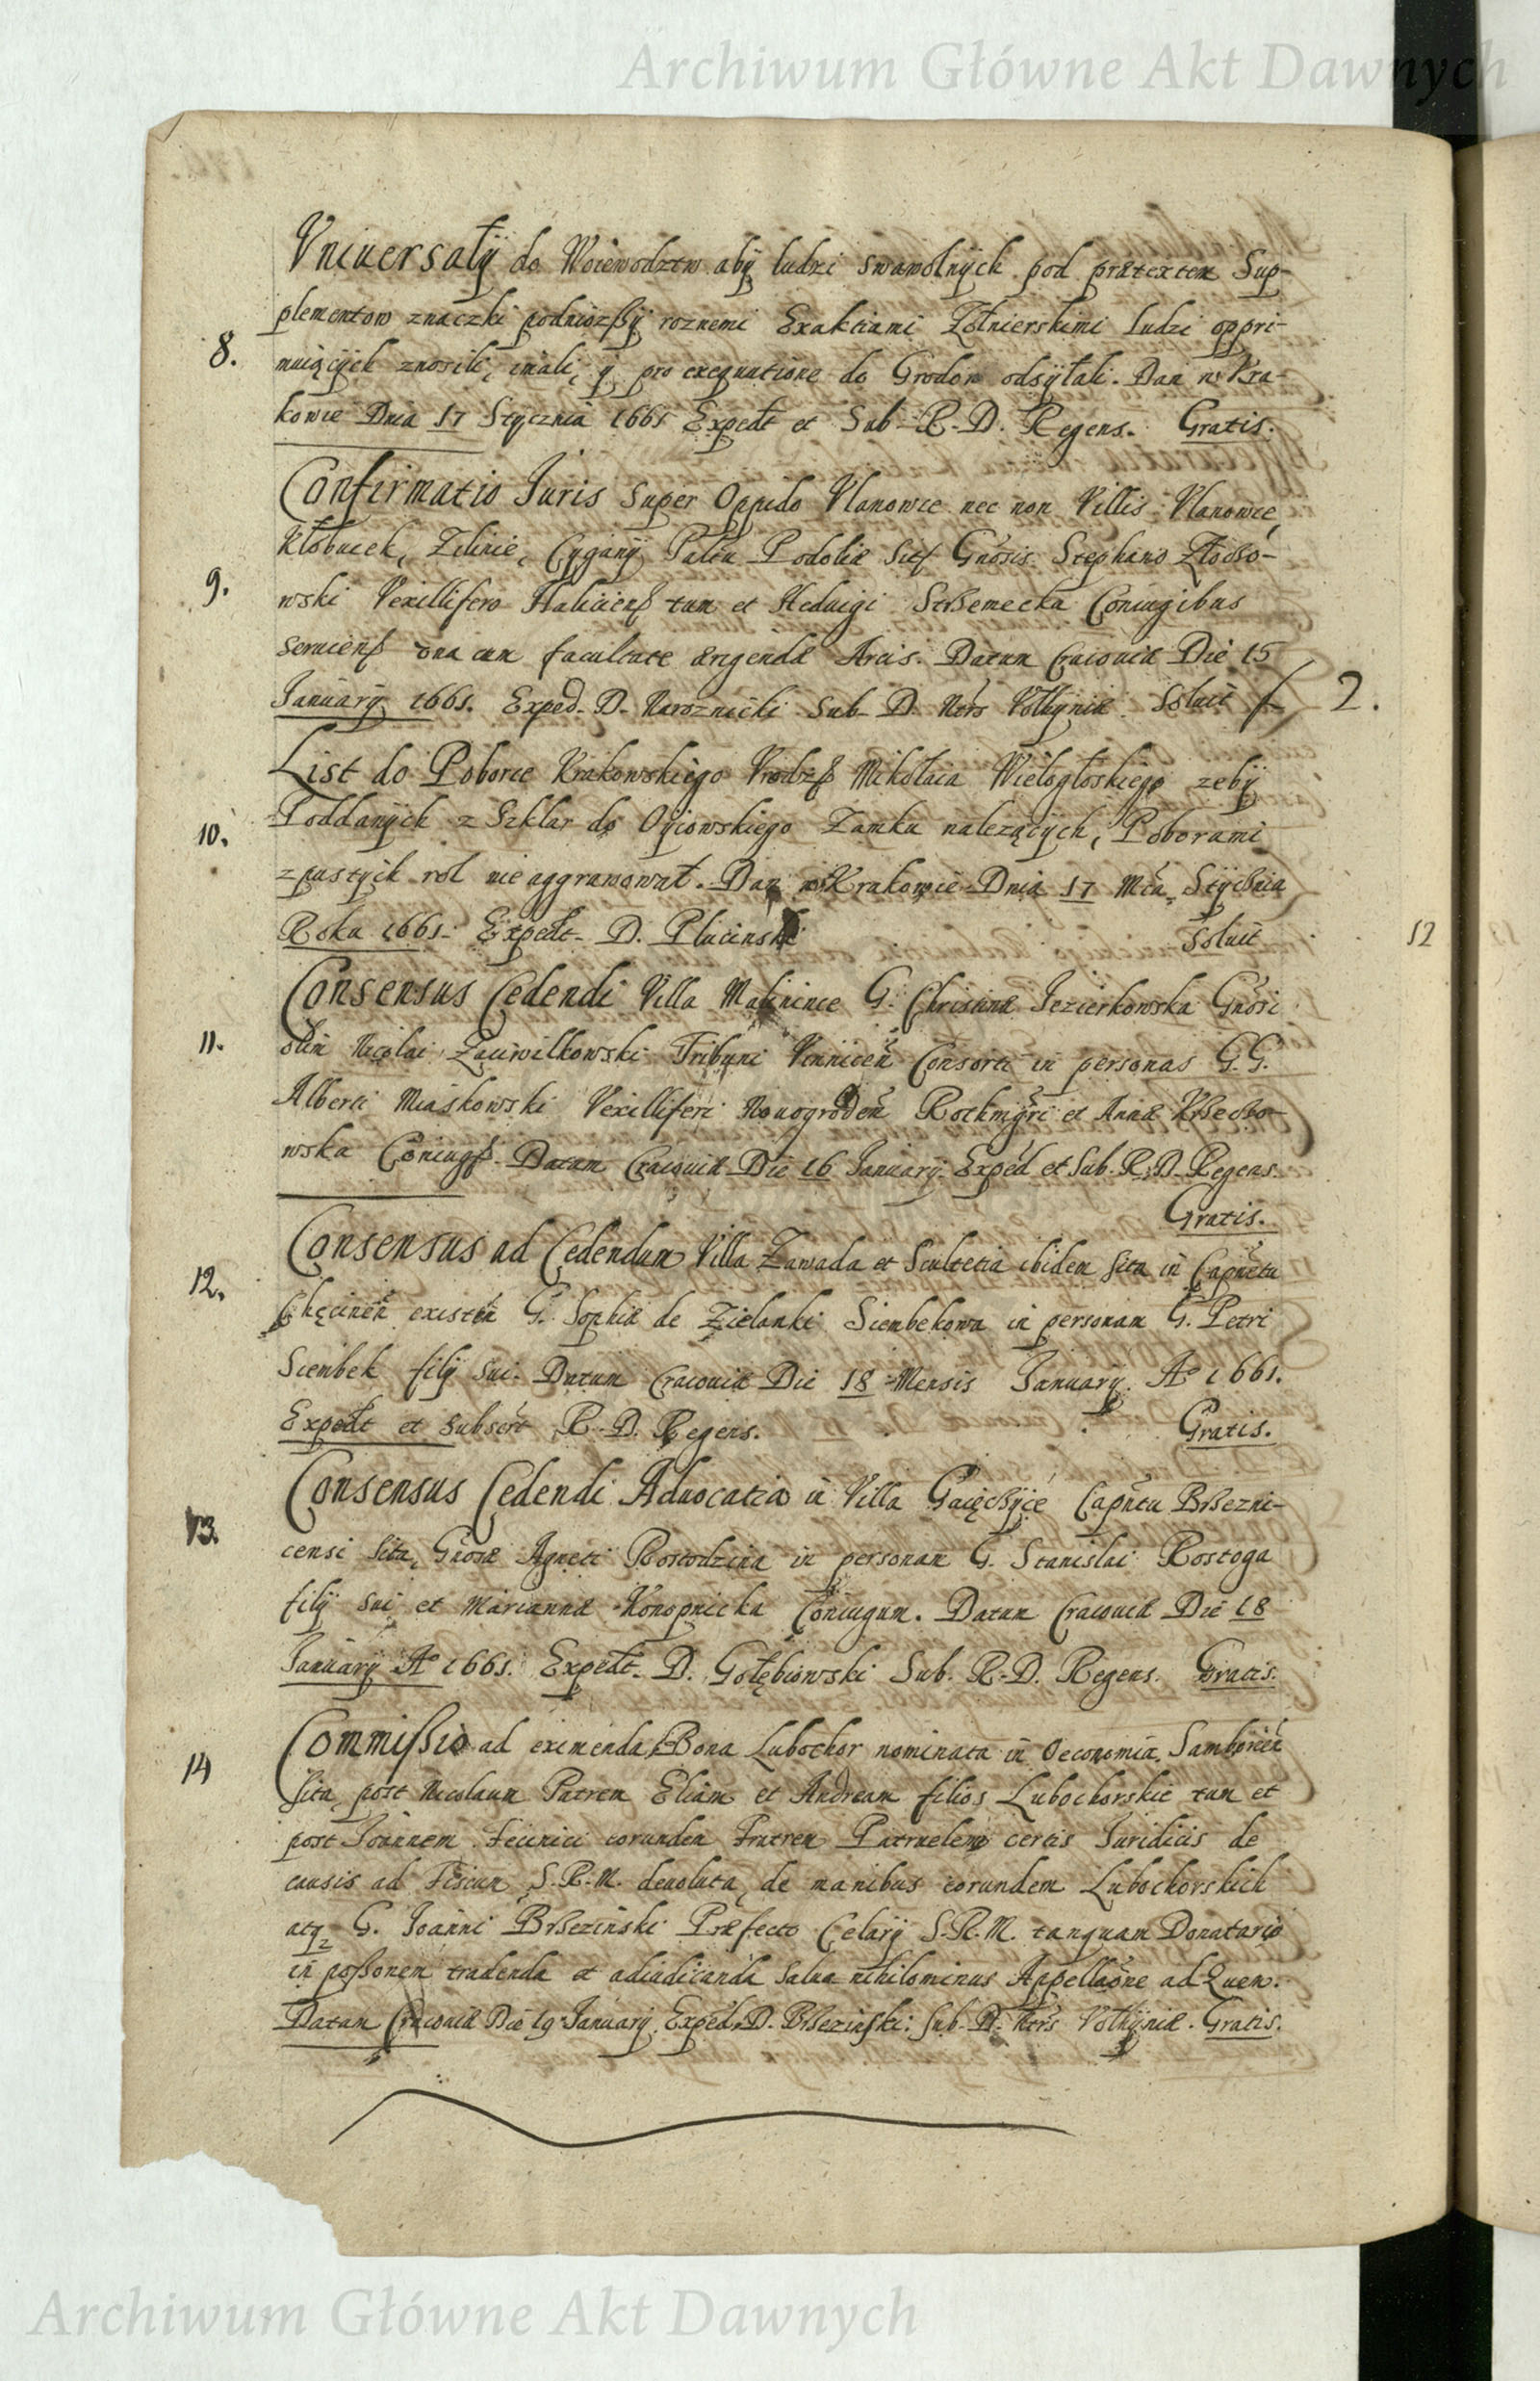 Archiwum Główne Akt Dawnych
Vniuersały do Woiewodztw aby ludzi swawolnych pod prætextem Sup-
plementow znaczki podniozszy roznemi Exakciami Żołnierskimi ludzi oppri-
8. muiących znosili, imali, y pro exequutione do Grodow odsyłali. Dan w Kra-
kowie Dnia 17 Stycznia 1661 Expedt et Sub R. D. Regens. Gratis.
Confirmatio Juris super Oppido Vlanowce nec non Villis Vlanowce,
Kłobucek, Zilinie, Cygany Paltu Podoliæ Sit Gnosis Stephano
9. wski Vexillifero Haliciens tum et Heduigi Coniugibus
seruiens vna cum facultate ærigendæ Arcis. Datum Cracouiæ Die 15
January 1661. Exped. D. Naroznicki Sub D. Ntrs Volhyniæ Soluit f 2.
List do Poborce Krakowskiego Vrodz Mikołaia Wielogłoskiego zeby
10. Poddanych z Szklar do Oycowskiego Zamku nalezących, Poborami
z pustych rol nie aggrawował. Dan w Krakowie Dnia 17 Mca Stycznia
Roku 1661. Expedt D. Plucinski Soluit
12
Consensus Cedendi Villa Malinince G. Christinæ Jezierkowska Gnosi
11. olim Nicolai Tribuni Vinnicen Consorti in personas G. G.
Alberti Miaskowski Vexilliferi Nouogroden Rothmgri et Annæ
wska Coniugs. Datum Cracouiæ Die 16 January. Exped et Sub. R. D. Regens.
Gratis.
12. Consensus ad Cedendum Villa Zawada et Scultetia ibidem sita in Capnetu
Chęcinen existen G. Sophiæ de Zielanki Siembekowa in personam G. Petri
Siembek filij sui. Datum Cracouiæ Die 18 Mensis January. Aº 1661.
Expedt et subscrt R. D. Regens. Gratis.
Consensus Cedendi Aduocatia in Villa Capntu Brzezni-
13. censi sita, Gnosæ Agneti Rostodzina in personam G. Stanislai Rostoga
filij sui et Mariannæ Konopnicka Coniugum. Datum Cracouiæ Die 18
January Aº 1661. Expedt. D. Gołębiowski Sub. R. D. Regens. Gratis.
14 Commissio ad eximenda Bona Lubochor nominata in Oeconomia Samborien
sita, post Nicolaum Patrem Eliam et Andream filios Lubochorskie tum et
post Joannem eorundem Fratrem Patruelem certis Juridicis de
causis ad Fiscum S. R. M. deuoluta, de manibus eorundem Lubochorskich
atq G. Joanni Brzezinski Præfecto Celarij S. R. M. tanquam Donatario
in possonem tradenda et adiudicanda salua nihilominus Appellaone ad Quem.
Datum Cracouiæ Die 19 January Exped. D. Brzezinski: Sub. D. Ntrs Volhyniæ. Gratis.
Archiwum Główne Akt Dawnych